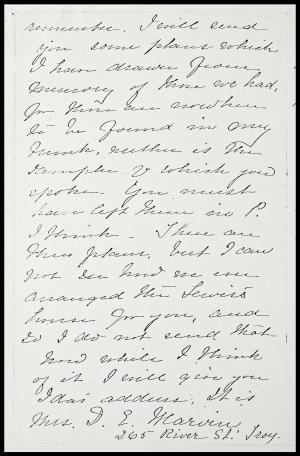 remember. I will send
you some plans which
I have drawn from
memory of those we had,
for those are nowhere
to be found in my
trunk, neither is the
sampler & which you
spoke. You must
have left them in P.
I think. These are
three plans, but I can
not see how we ever
arranged the Lewis's
house for you, and
so I do not send that.
Now while I think
of it I will give you
Ida's address. It is
Mrs. D. E. Marvin,
265 River St. Troy.